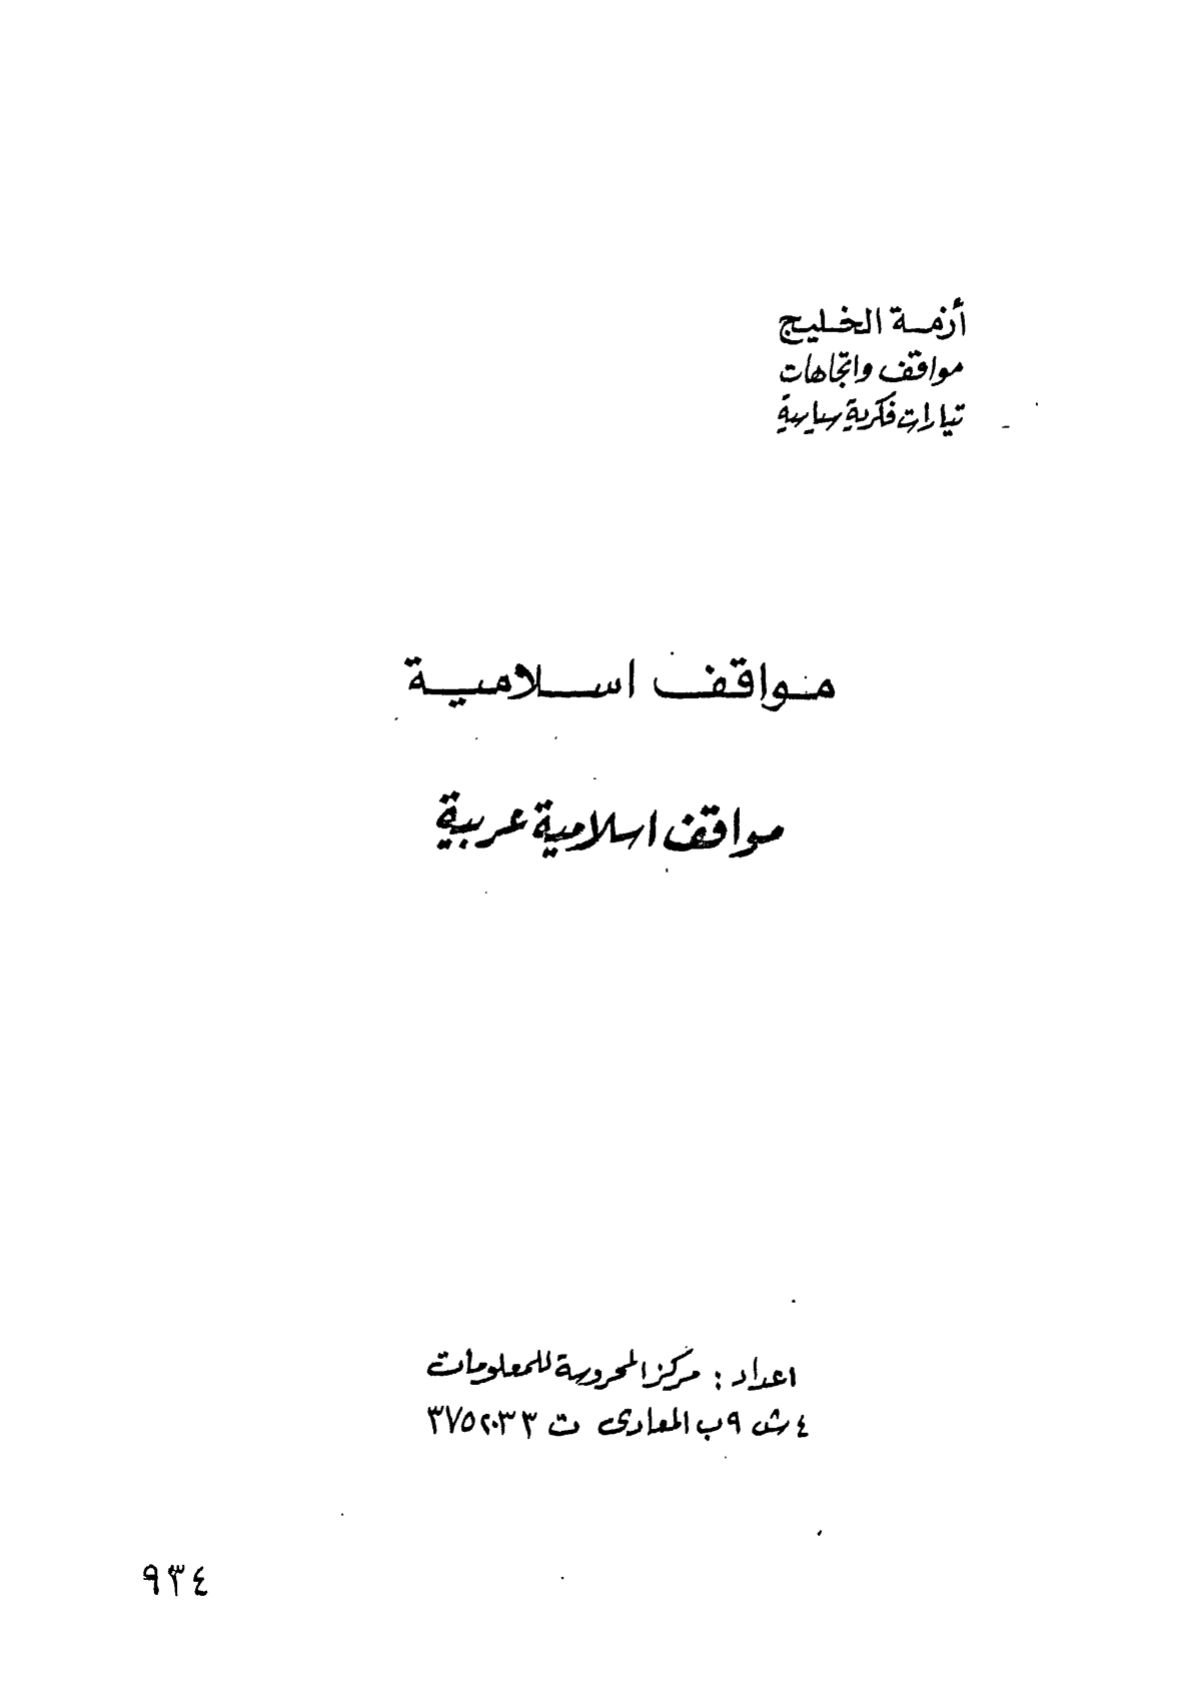 أزمة الخليج
مواقف واتجاهات
تيارات فكرية سياسية
مواقف اسلامية
مواقف اسلامية عربية
اعداد : مركز المحروسة للمعلومات
٤ ش ٩ب المعادى ت ٣٧٥٢٠٣٣
٩٣٤